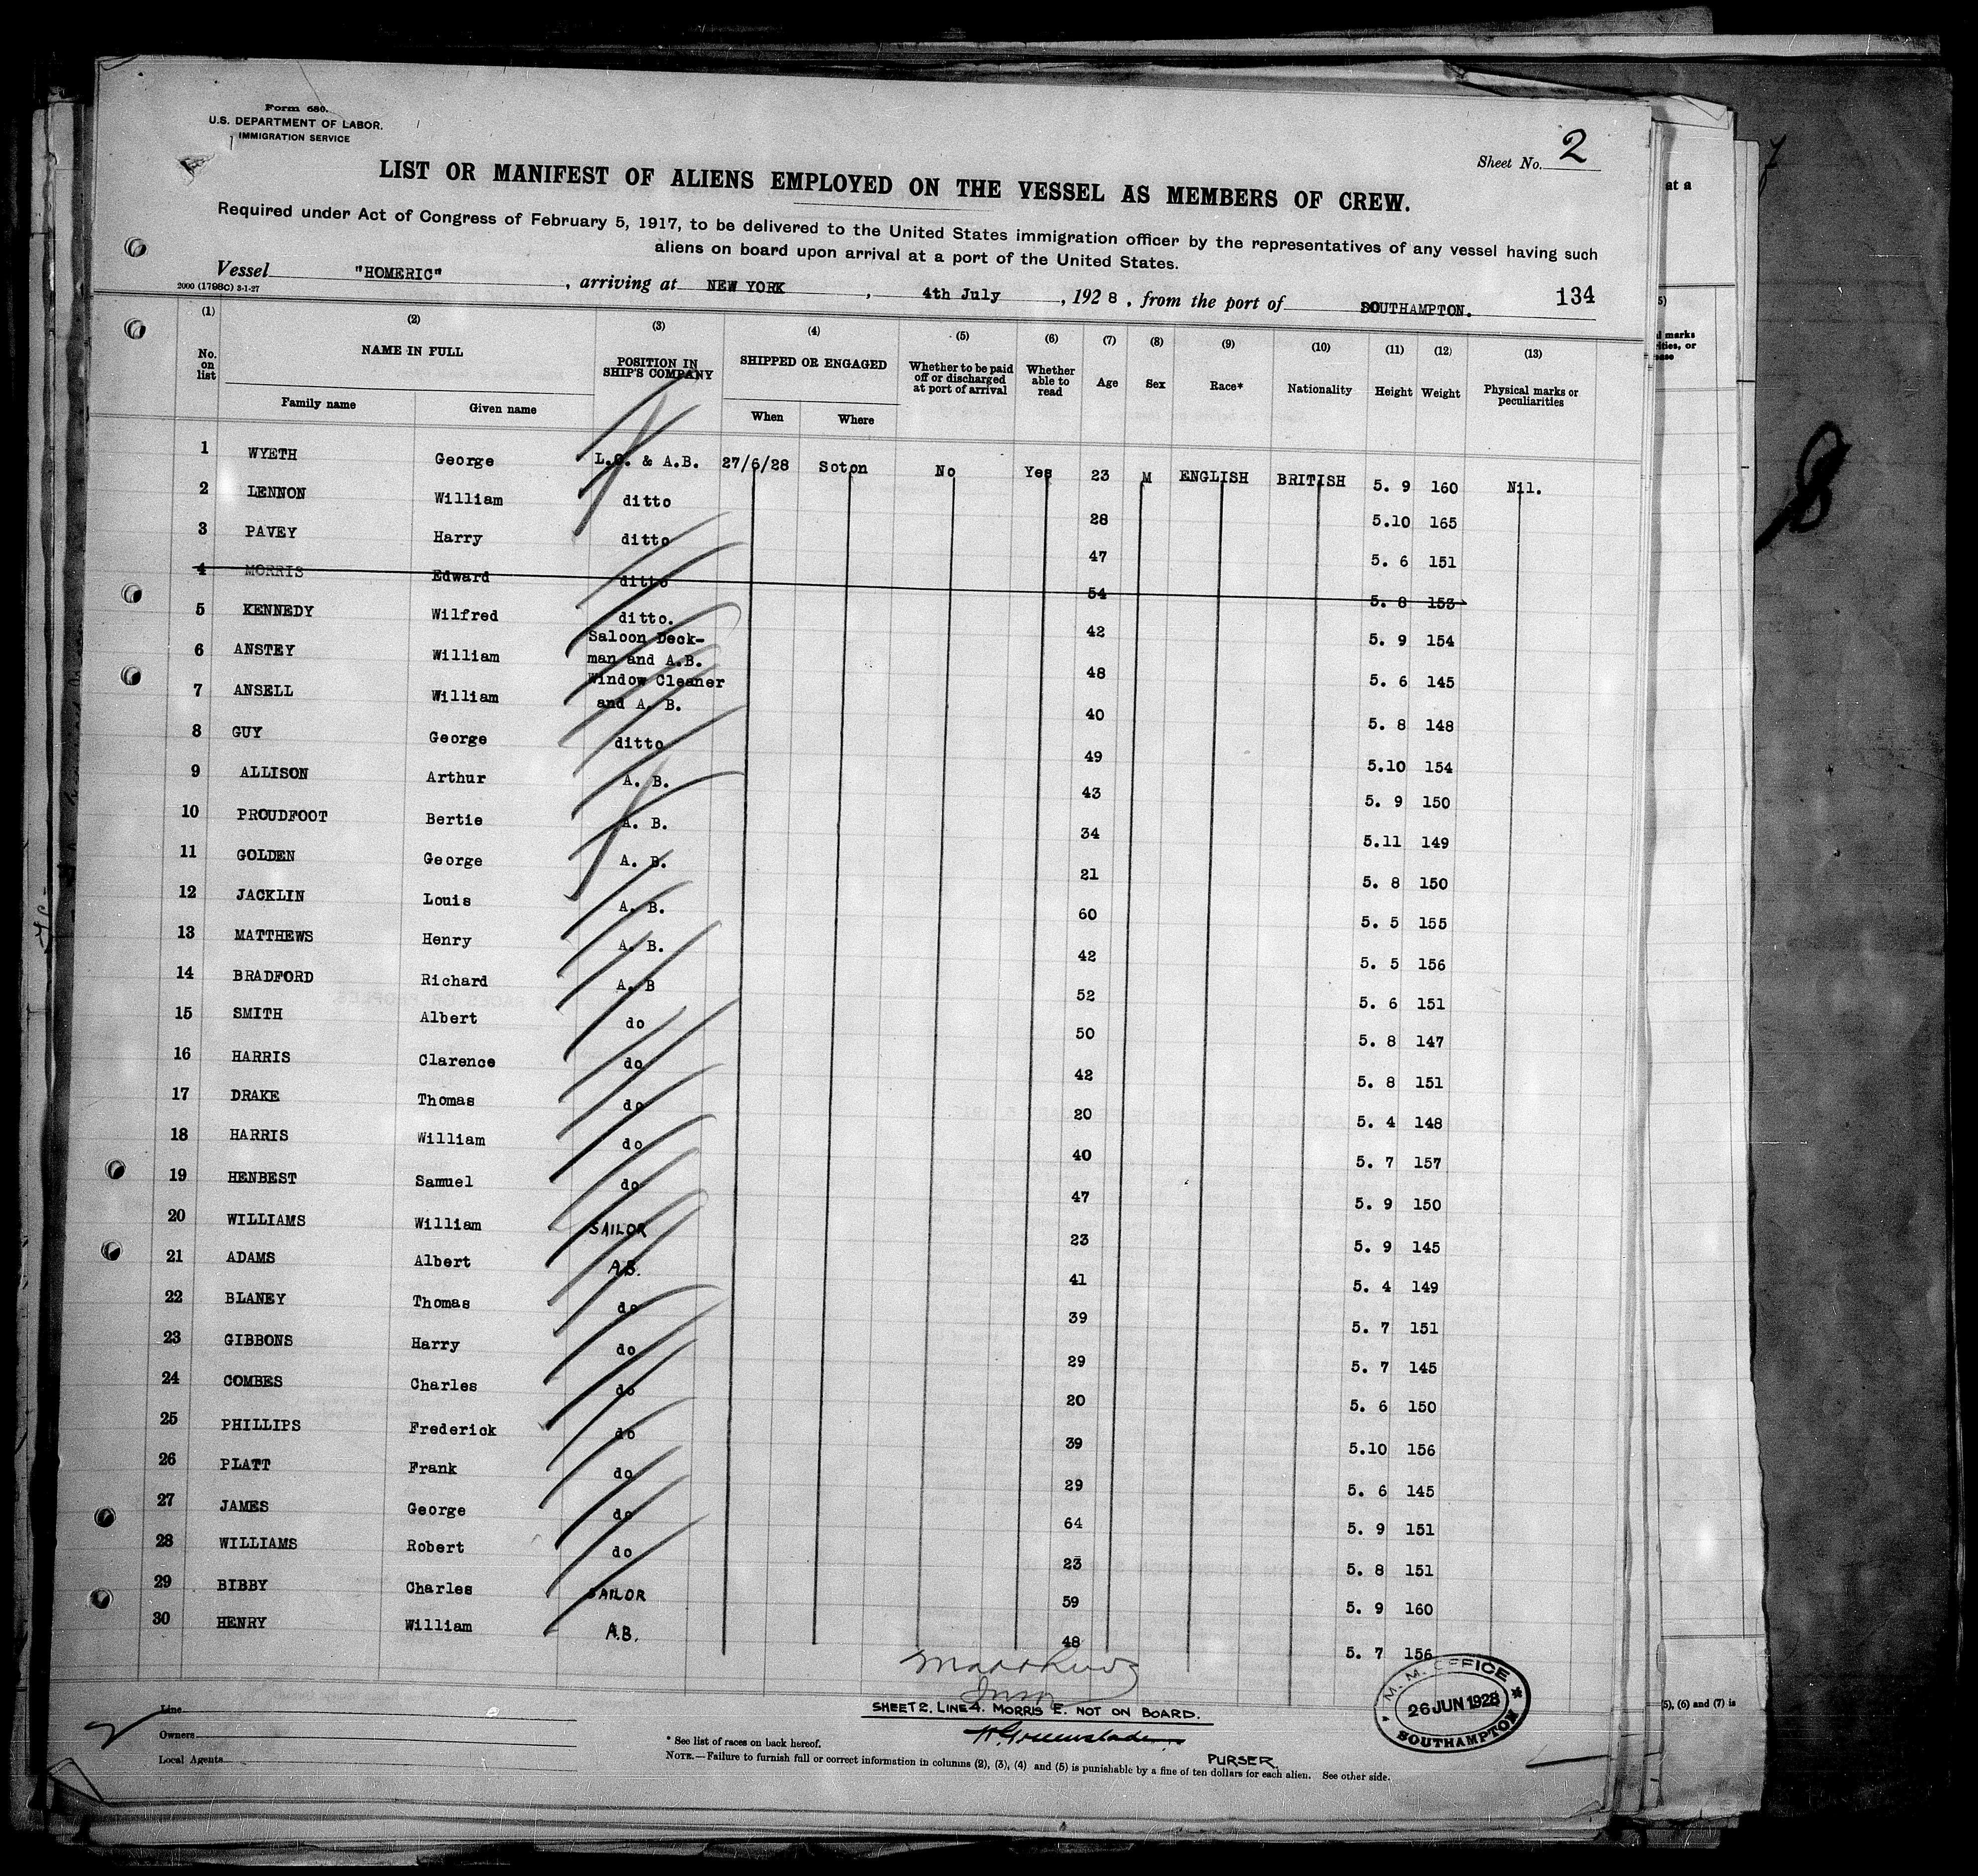 Form 680.
U.S. DEPARTMENT OF LABOR.
IMMIGRATION SERVICE
Sheet No. 2
LIST OR MANIFEST OF ALIENS EMPLOYED ON THE VESSEL AS MEMBERS OF CREW.
Required under Act of Congress of February 5, 1917, to be delivered to the United States immigration officer by the representatives of any vessel having such
aliens on board upon arrival at a port of the United States.
Vessel "HOMERIC", arriving at NEW YORK, 4th July, 1928, from the port of SOUTHAMPTON. 134
2000 (1798C) 3-1-27
(1) (2) (3) (4) (5) (6) (7) (8) (9) (10) (11) (12) (13)
No. on list NAME IN FULL POSITION IN SHIP'S COMPANY SHIPPED OR ENGAGED Whether to be paid off or discharged at port of arrival Whether able to read Age Sex Race* Nationality Height Weight Physical marks or peculiarities
Family name Given name When Where
1 WYETH George L.O. & A.B. 27/6/28 Soton No Yes 23 M ENGLISH BRITISH 5. 9 160 Nil.
2 LENNON William ditto 28 5.10 165
3 PAVEY Harry ditto 47 5. 6 151
4 MORRIS Edward ditto 54 5. 8 153
5 KENNEDY Wilfred ditto. 42 5. 9 154
6 ANSTEY William Saloon Deck-man and A.B. 48 5. 6 145
7 ANSELL William Window Cleaner and A. B. 40 5. 8 148
8 GUY George ditto 49 5.10 154
9 ALLISON Arthur A. B. 43 5. 9 150
10 PROUDFOOT Bertie A. B. 34 5.11 149
11 GOLDEN George A. B. 21 5. 8 150
12 JACKLIN Louis A. B. 60 5. 5 155
13 MATTHEWS Henry A. B. 42 5. 5 156
14 BRADFORD Richard A. B 52 5. 6 151
15 SMITH Albert do 50 5. 8 147
16 HARRIS Clarence do 42 5. 8 151
17 DRAKE Thomas do 20 5. 4 148
18 HARRIS William do 40 5. 7 157
19 HENBEST Samuel do 47 5. 9 150
20 WILLIAMS William SAILOR 23 5. 9 145
21 ADAMS Albert A.B. 41 5. 4 149
22 BLANEY Thomas do 39 5. 7 151
23 GIBBONS Harry do 29 5. 7 145
24 COMBES Charles do 20 5. 6 150
25 PHILLIPS Frederick do 39 5.10 156
26 PLATT Frank do 29 5. 6 145
27 JAMES George do 64 5. 9 151
28 WILLIAMS Robert do 23 5. 8 151
29 BIBBY Charles SAILOR 59 5. 9 160
30 HENRY William A.B. 48 5. 7 156
M. M. OFFICE
26 JUN 1928
SOUTHAMPTON
SHEET 2. LINE 4. MORRIS E. NOT ON BOARD.
PURSER
Line
Owners
Local Agents
* See list of races on back hereof.
NOTE.—Failure to furnish full or correct information in columns (2), (3), (4) and (5) is punishable by a fine of ten dollars for each alien. See other side.
at a
5), (6) and (7) is